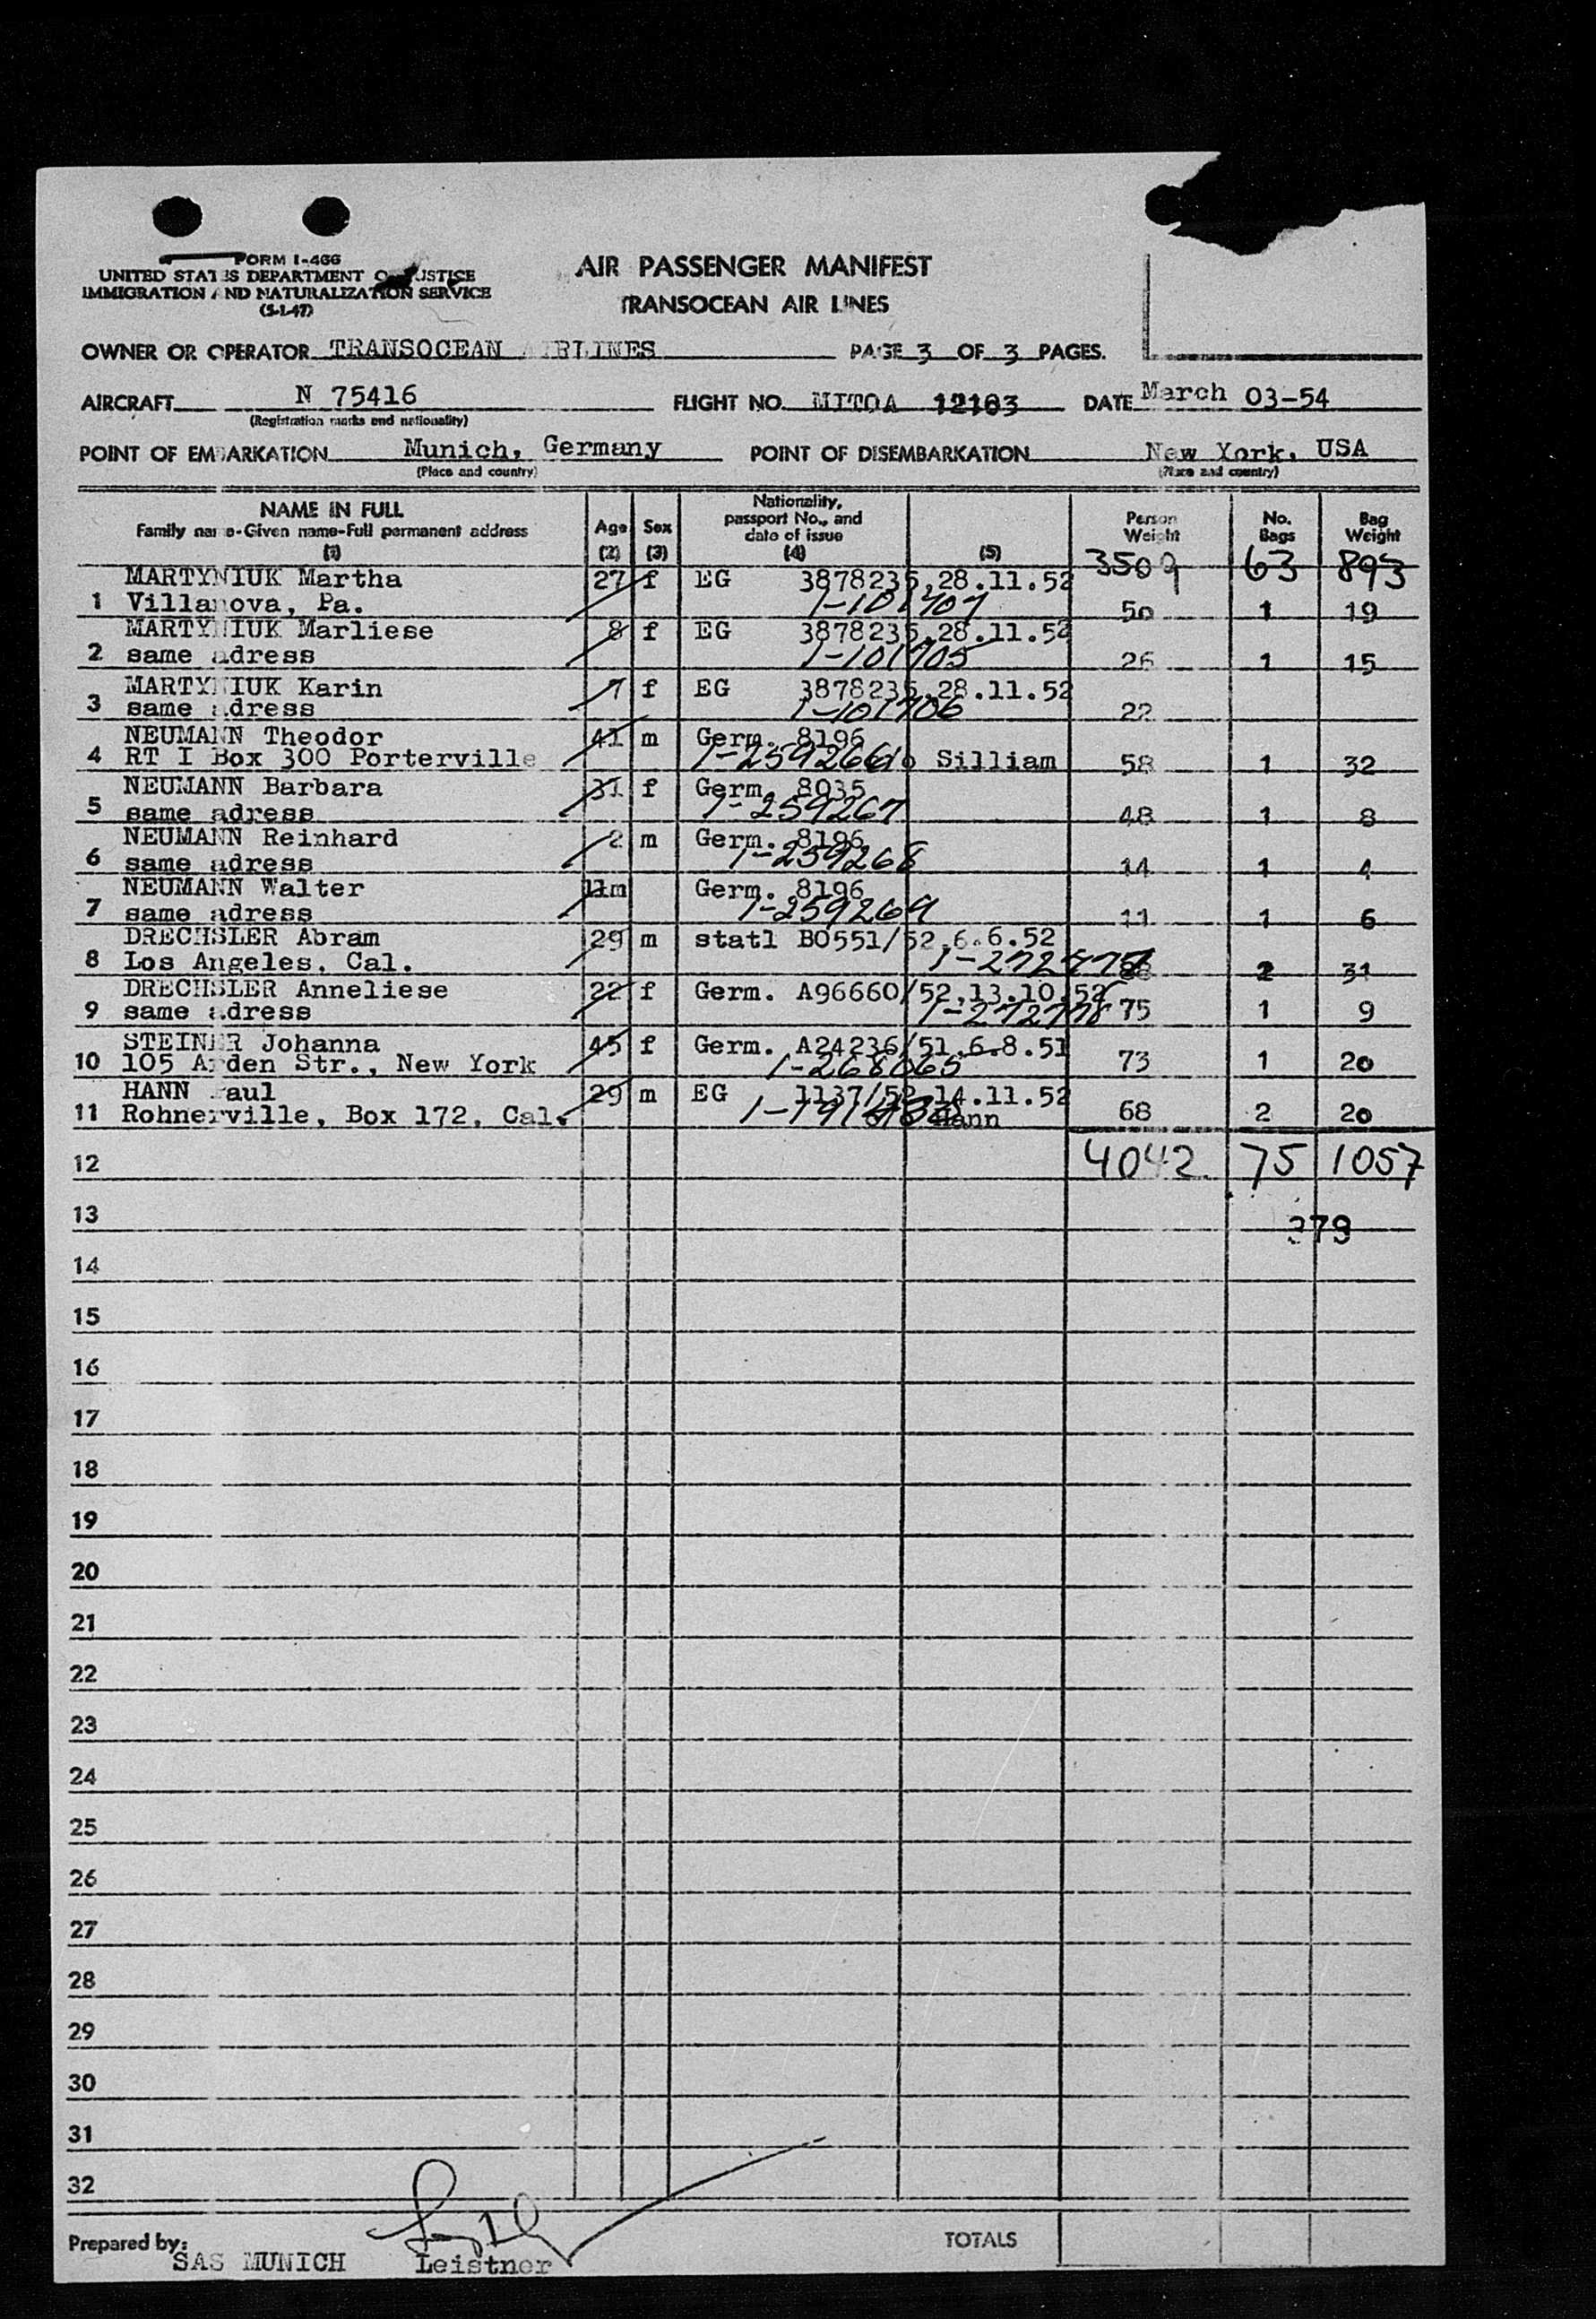 FORM I-466
UNITED STATES DEPARTMENT OF JUSTICE
IMMIGRATION AND NATURALIZATION SERVICE
(5-1-47)
AIR PASSENGER MANIFEST
TRANSOCEAN AIR LINES
OWNER OR OPERATOR TRANSOCEAN AIRLINES PAGE 3 OF 3 PAGES.
AIRCRAFT N 75416 FLIGHT NO. MITOA 12103 DATE March 03-54
(Registration marks and nationality)
POINT OF EMBARKATION Munich, Germany POINT OF DISEMBARKATION New York, USA
(Place and country) (Place and country)
NAME IN FULL Age Sex Nationality, passport No., and date of issue Person Weight No. Bags Bag Weight
Family name-Given name-Full permanent address
(1) (2) (3) (4) (5)
3509 63 893
MARTYNIUK Martha 27 f EG 3878235,28.11.52
1 Villanova, Pa. 50 1 19
MARTYNIUK Marliese 8 f EG 3878235,28.11.52
2 same adress 1-101705 26 1 15
MARTYNIUK Karin 7 f EG 3878235,28.11.52
3 same adress 1-101706 22
NEUMANN Theodor 41 m Germ. 8196
4 RT I Box 300 Porterville 1-259266 Silliam 58 1 32
NEUMANN Barbara 31 f Germ. 8035
5 same adress 1-259267 48 1 8
NEUMANN Reinhard 2 m Germ. 8196
6 same adress 1-259268 14 1 4
NEUMANN Walter 11m Germ. 8196
7 same adress 1-259269 11 1 6
DRECHSLER Abram 29 m statl BO551/52,6.6.52
8 Los Angeles, Cal. 2 31
DRECHSLER Anneliese 22 f Germ. A96660/52,13.10.52
9 same adress 1-272778 75 1 9
STEINER Johanna 45 f Germ. A24236/51,6.8.51
10 105 Arden Str., New York 1-268065 73 1 20
HANN Paul 29 m EG 1137/52,14.11.52
11 Rohnerville, Box 172, Cal. Hann 68 2 20
12 4042 75 1057
13 379
14
15
16
17
18
19
20
21
22
23
24
25
26
27
28
29
30
31
32
Prepared by: TOTALS
SAS MUNICH Leistner